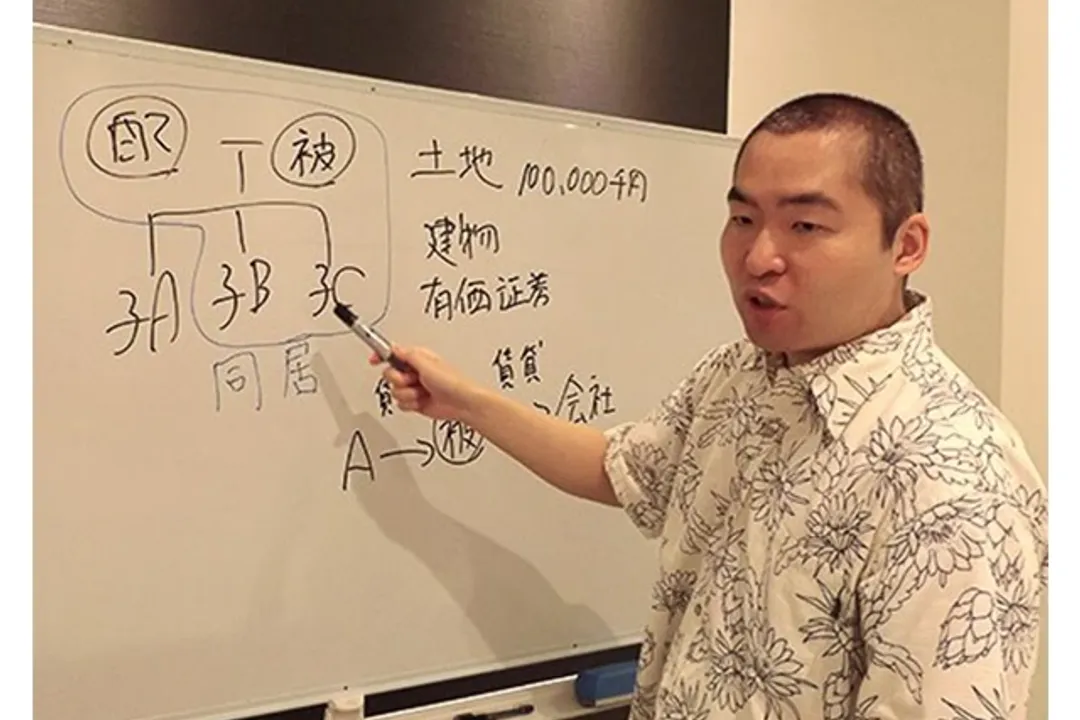 配 被
土地 100,000千円
建物
有価証券
子A 子B 子C
同居
賃貸
A→被→会社